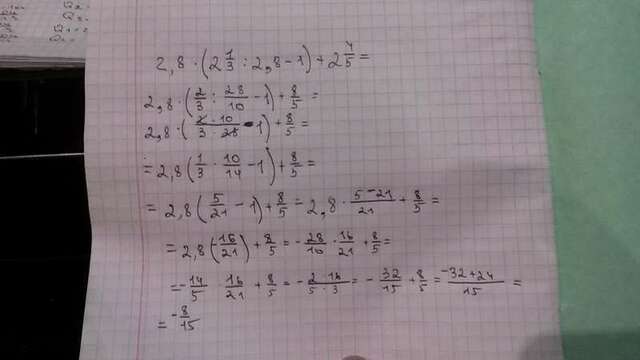 2,8 · (2 1/3 : 2,8 - 1) + 2 4/5 =
2,8 · (2/3 : 28/10 - 1) + 8/5 =
2,8 · (2 · 10/3 · 28 - 1) + 8/5 =
= 2,8 (1/3 · 10/14 - 1) + 8/5 =
= 2,8 (5/21 - 1) + 8/5 = 2,8 · 5-21/21 + 8/5 =
= 2,8 (-16/21) + 8/5 = - 28/10 · 16/21 + 8/5 =
= - 14/5 16/21 + 8/5 = - 2·16/5·3 = - 32/15 + 8/5 = -32+24/15 =
= -8/15